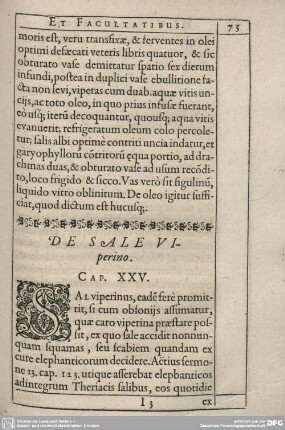 ET FACULTATIBUS. 75
moris est, veru transfixæ, & ferventes in olei
optimi defæcati veteris libris quatuor, & sic
obturato vase demittatur spatio sex dierum
infundi, postea in duplici vase ebullitione fa-
cta non levi, viperas cum duab. aquæ vitis un-
cijs, ac toto oleo, in quo prius infusæ fuerant,
eò usq; iterũ decoquantur, quousq; aqua vitis
evanuerit. refrigeratum oleum colo percole-
tur; salis albi optimè contriti uncia indatur, et
garyophyllorũ cõtritorũ equa portio, ad dra-
chmas duas, & obturato vase ad usum recõdi-
to, loco frigido & sicco. Vas verò sit figulinũ,
liquido vitro oblinitum. De oleo igitur suffi-
ciat, quod dictum est hucusq;.
DE SALE VI-
perino.
CAP. XXV.
SAL viperinus, eadẽ ferè promit-
tit, si cum obsonijs assumatur,
quæ caro viperina præstare pos-
sit, ex quo sale accidit nonnun-
quam squamas, seu scabiem quandam ex
cute elephanticorum decidere. Aëtius sermo-
ne 13. cap. 123. utique asserebat elephanticos
ad integrum Theriacis salibus, eos quotidie
I 3 ex